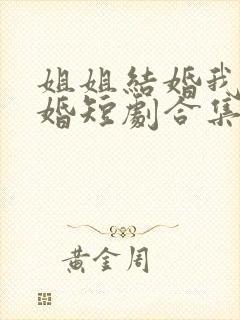 姐姐結婚我
婚短劇合集
黃金周